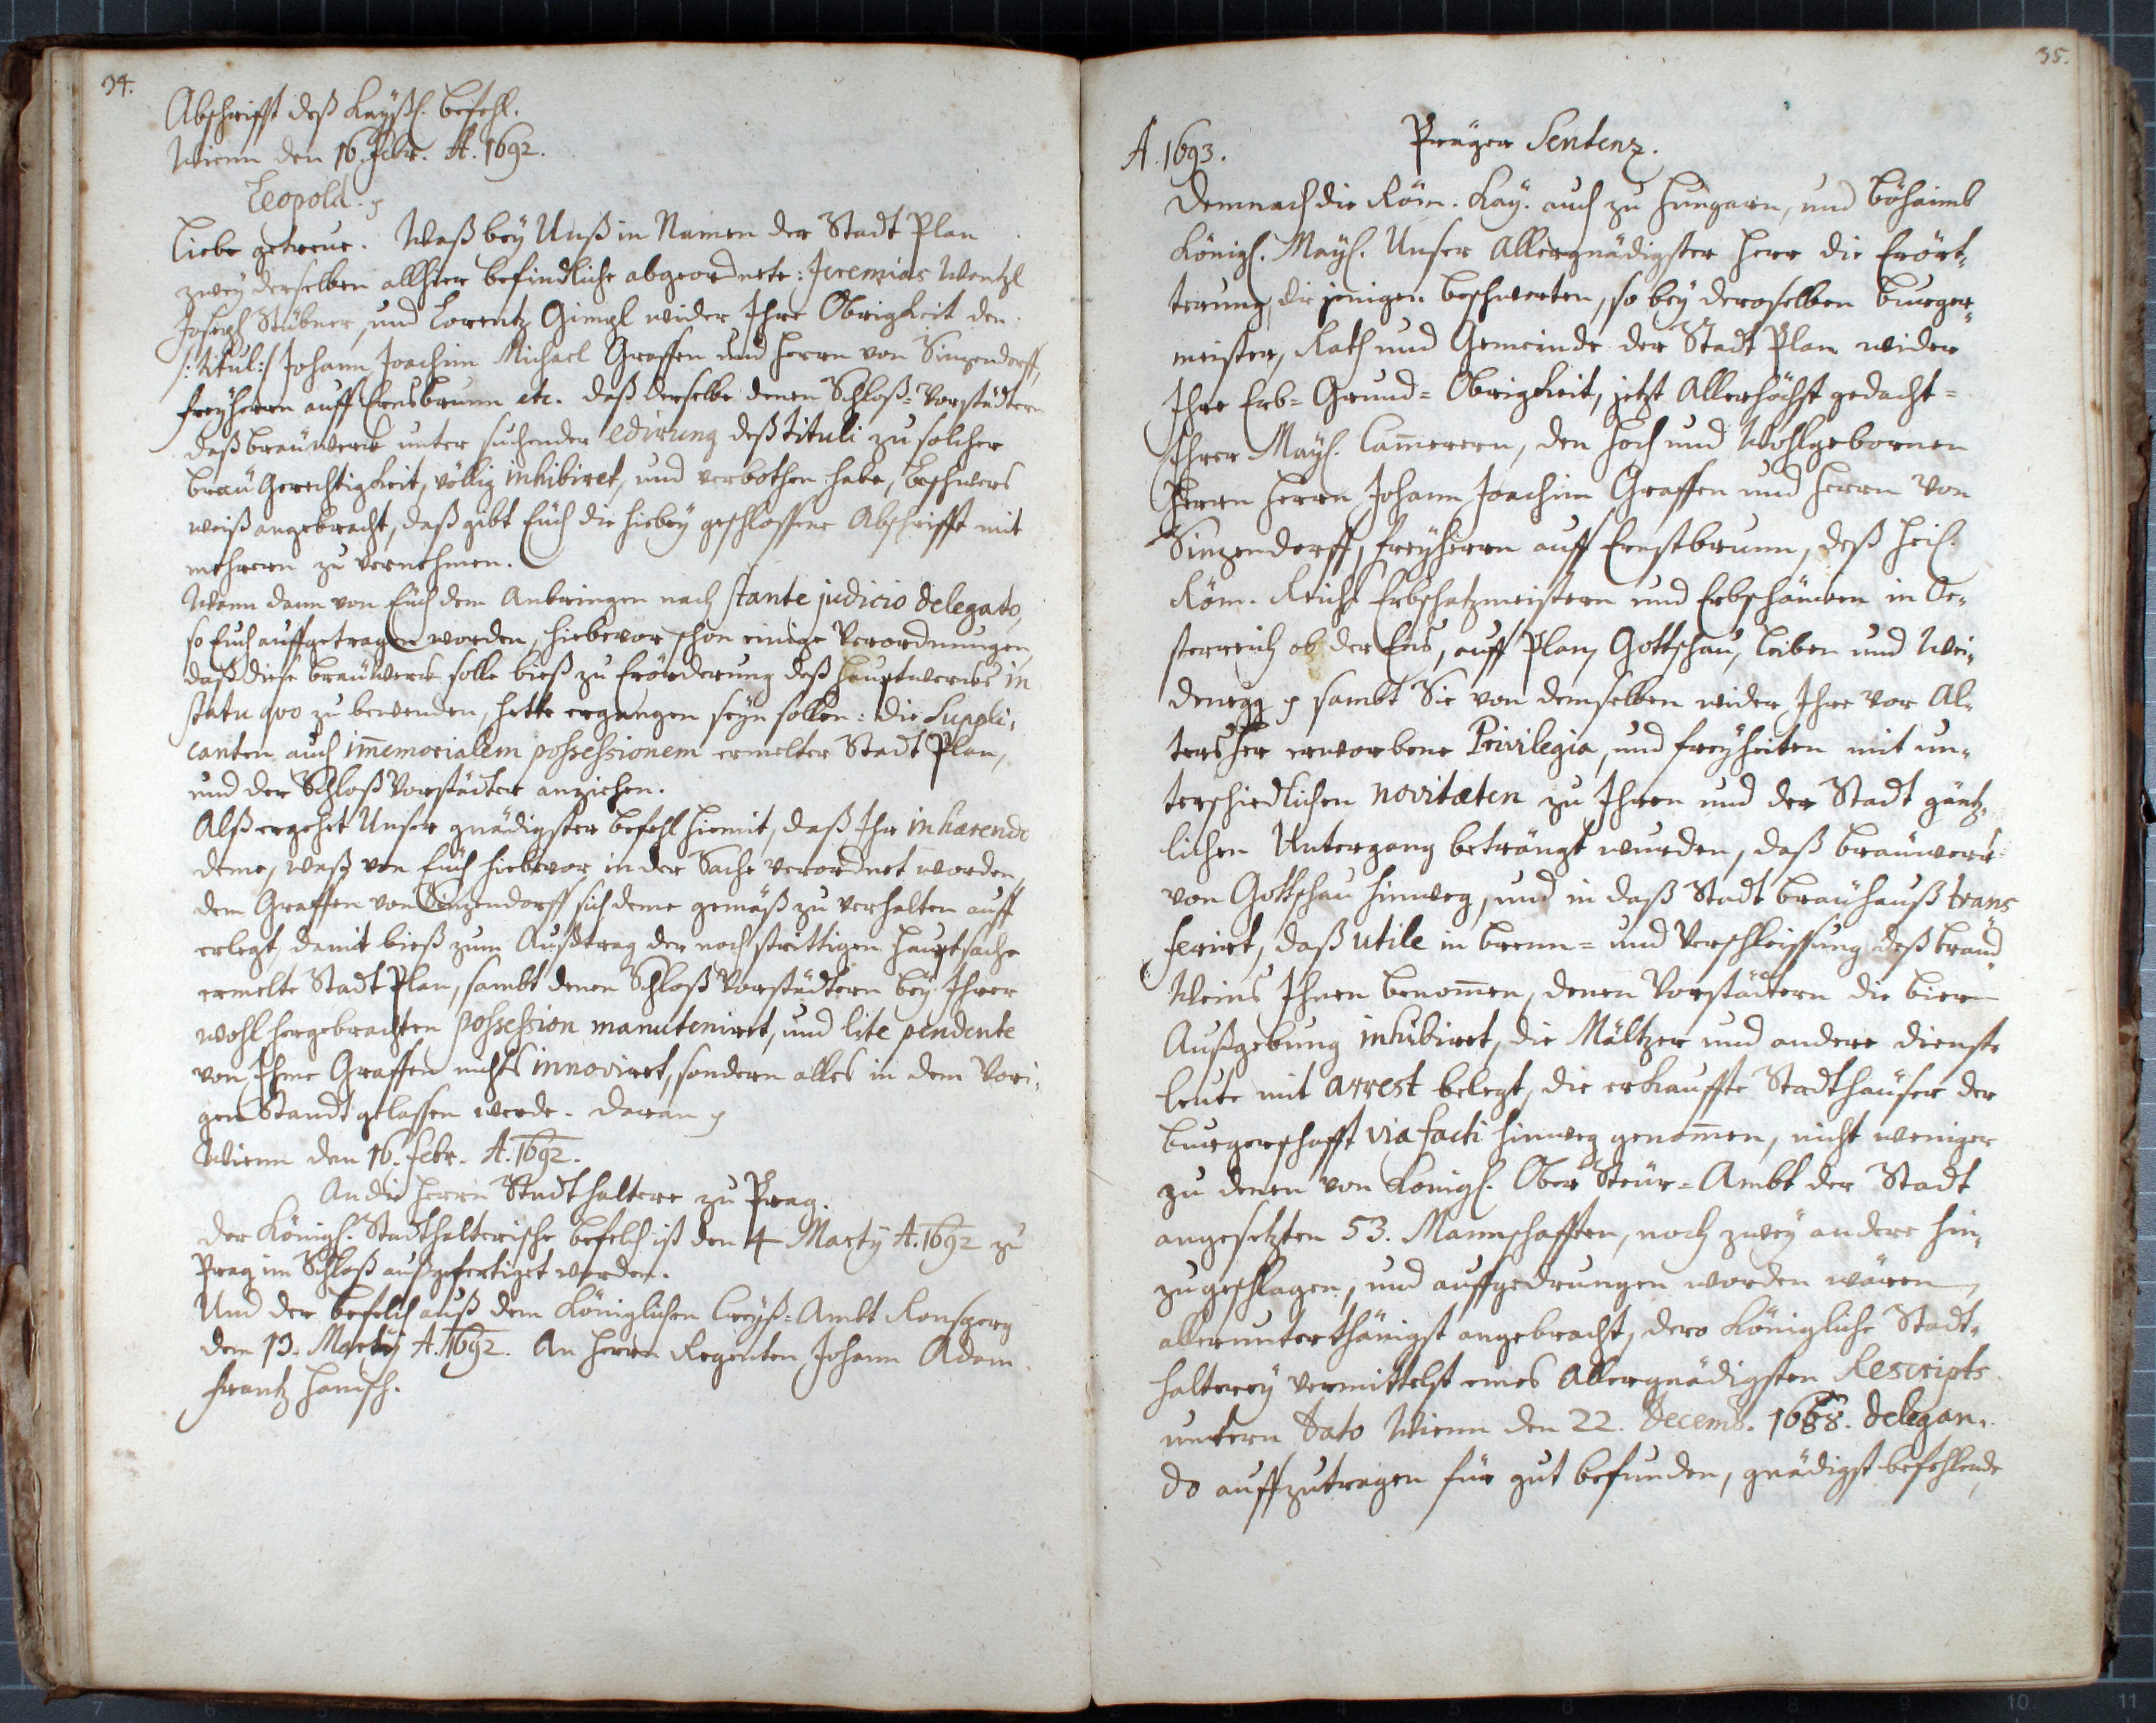 34.
Abschrifft deß Kayßl. befehl.
Wienn den 16. Febr. A. 1692.
Leopold. p
Liebe getreue. Waß bey Unß in Namen der Stadt Plan
zwey derselben allhier befindliche abgeordnete: Jeremias Wentzl
Joseph Stübner, und Lorentz Gimpl wider Ihre Obrigkeit den
/: titul :/ Johann Joachim Michael Graffen und Herrn von Sinzendorff,
Freyherrn auff Ernsbrunn etc. daß derselbe denen Schloß-Vorstädtern
daß bräuwerck unter suchender edirung deß tituli zu solcher
bräu Gerechtigkeit, völlig inhibiret, und verbothen habe, beschwers
weiß angebracht, daß gibt Euch die hiebey geschlossene Abschrifft mit
mehrern zu vernehmen.
Wann dann von Euch dem Anbringen nach stante judicio delegato,
so Euch auffgetragen worden, hiebevor schon einige Verordnungen,
daß diese bräuwerck solle bieß zu Erörderung deß Hauptwercks in
statu quo zu bewenden, hette ergangen seyn sollen: die Suppli,
canten auch im̄emorialem possessionem ermelter Stadt Plan,
und der Schloß Vorstädter anziehen.
Alß ergehet Unser gnädigster befehl hiemit, daß Ihr inhærendo
deme, waß von Euch hiebevor in der Sache verordnet worden,
dem Graffen von Sinzendorff sich deme gemäß zu verhalten auff
erlegt, damit bieß zum Außtrag der noch strittigen Hauptsache
ermelte Stadt Plan, sambt denen Schloß Vorstädtern bey Ihrer
wohl hergebrachten possession manuteniret, und lite pendente
von Ihme Graffen nichts innoviret, sondern alles in dem Vori,
gen Standt gelassen werde. Daran p
Wienn den 16. Febr. A. 1692.
An die Herrn Stadthaltere zu Prag.
Der Königl. Stadthalterische befelch ist den 4 Martÿ A. 1692 zu
Prag im Schloß außgefertiget worden.
Und der befelch auß dem Königlichen Creyß-Ambt Ronsperg
den 13. Martÿ A. 1692. An Herrn Regenten Johann Adam
Frantz Hanisch.
35.
A. 1693. Präger Sentenz.
Demnach die Röm. Kay. auch zu Hungarn, und böhaimb
Königl. Mayl. Unser Allergnädigster Herr die Erört-
terung, die jenigen beschwerten, so bey deroselben burger-
meister, Rath und Gemeinde der Stadt Plan wider
Ihre Erb- Grund- Obrigkeit, jetzt Allerhöchst gedacht-
Ihrer Mayl. Cam̄erern, den Hoch und Wohlgebornen
Herrn Herrn Johann Joachim Graffen und Herrn von
Sinzendorff, Freyherrn auff Ernstbrunn, deß Heil.
Röm. Reichs Erbschatzmeistern und Erbschäncken in Oe-
sterreich ob der Ens, auff Plan, Gottschau, Leiben und Wei-
denegg p sambt Sie von demselben wider Ihre vor Al-
ters her erworbene Privilegia, und Freyheiten mit un-
terschiedlichen novitæten zu Ihren und der Stadt gäntz-
lichen Untergang beträngt wurden, daß bräuwerck
von Gottschau hinweg, und in daß Stadt bräuhauß trans
feriret, daß utile in brenn- und Verschleissung deß brand
Weins Ihnen benom̄en, denen Vorstädtern die bier
Außgebung inhibiret, die Mältzer und andere dienst
leute mit arrest belegt, die erkauffte Stadthäuser der
burgerschafft via facti hinweg genom̄en, nicht weniger
zu denen von Königl. Ober Steür-Ambt der Stadt
angesetzten 53. Mannschafften, noch zwey andere hin-
zu geschlagen, und auffgedrungen worden wären,
allerunterthänigst angebracht, dero Königliche Stadt-
halterey vermittelst eines Allergnädigsten Rescripts
untern dato Wienn den 22. Decemb. 1688. delegan-
do auffzutragen für gut befunden, gnädigst befehlende,